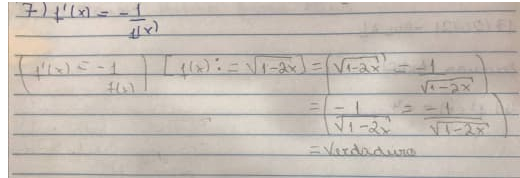 7) f'(x) = -1/f(x)
(f'(x) = -1/f(x)) [f(x) := √(1-2x)] = (√(1-2x)' = -1/√(1-2x))
= (-1/√(1-2x) = -1/√(1-2x))
= Verdadeiro